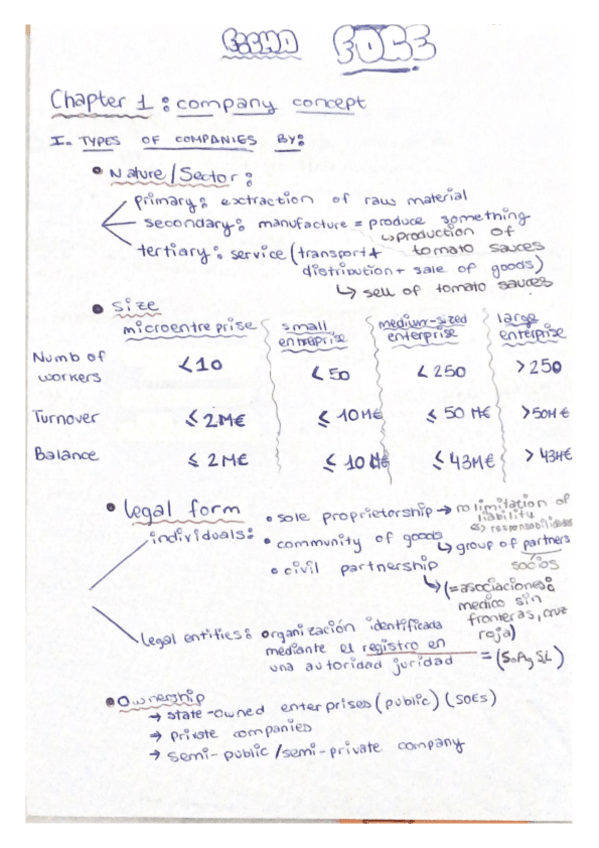 FOCE
Chapter 1: company concept
I- TYPES OF COMPANIES BY:
• Nature/Sector:
primary: extraction of raw material
secondary: manufacture = produce something
↳ production of tomato sauces
tertiary: service (transport +
distribution + sale of goods)
↳ sell of tomato sauces
• Size
microentreprise small enterprise medium-sized enterprise large enterprise
Numb of workers <10 <50 <250 >250
Turnover ≤ 2M€ ≤ 10M€ ≤ 50 M€ >50M€
Balance ≤ 2M€ ≤ 10M€ ≤ 43M€ > 43M€
• legal form
individuals:
• sole proprietorship → no limitation of liability
<=> responsabilidades
• community of goods
↳ group of partners
socios
• civil partnership
↳ (= asociaciones:
medico sin
fronteras, cruz
roja)
legal entities: organización identificada
mediante el registro en
una autoridad juridad = (S.A y S.L)
• Ownership
→ state-owned enterprises (public) (SOEs)
→ private companies
→ semi-public/semi-private company